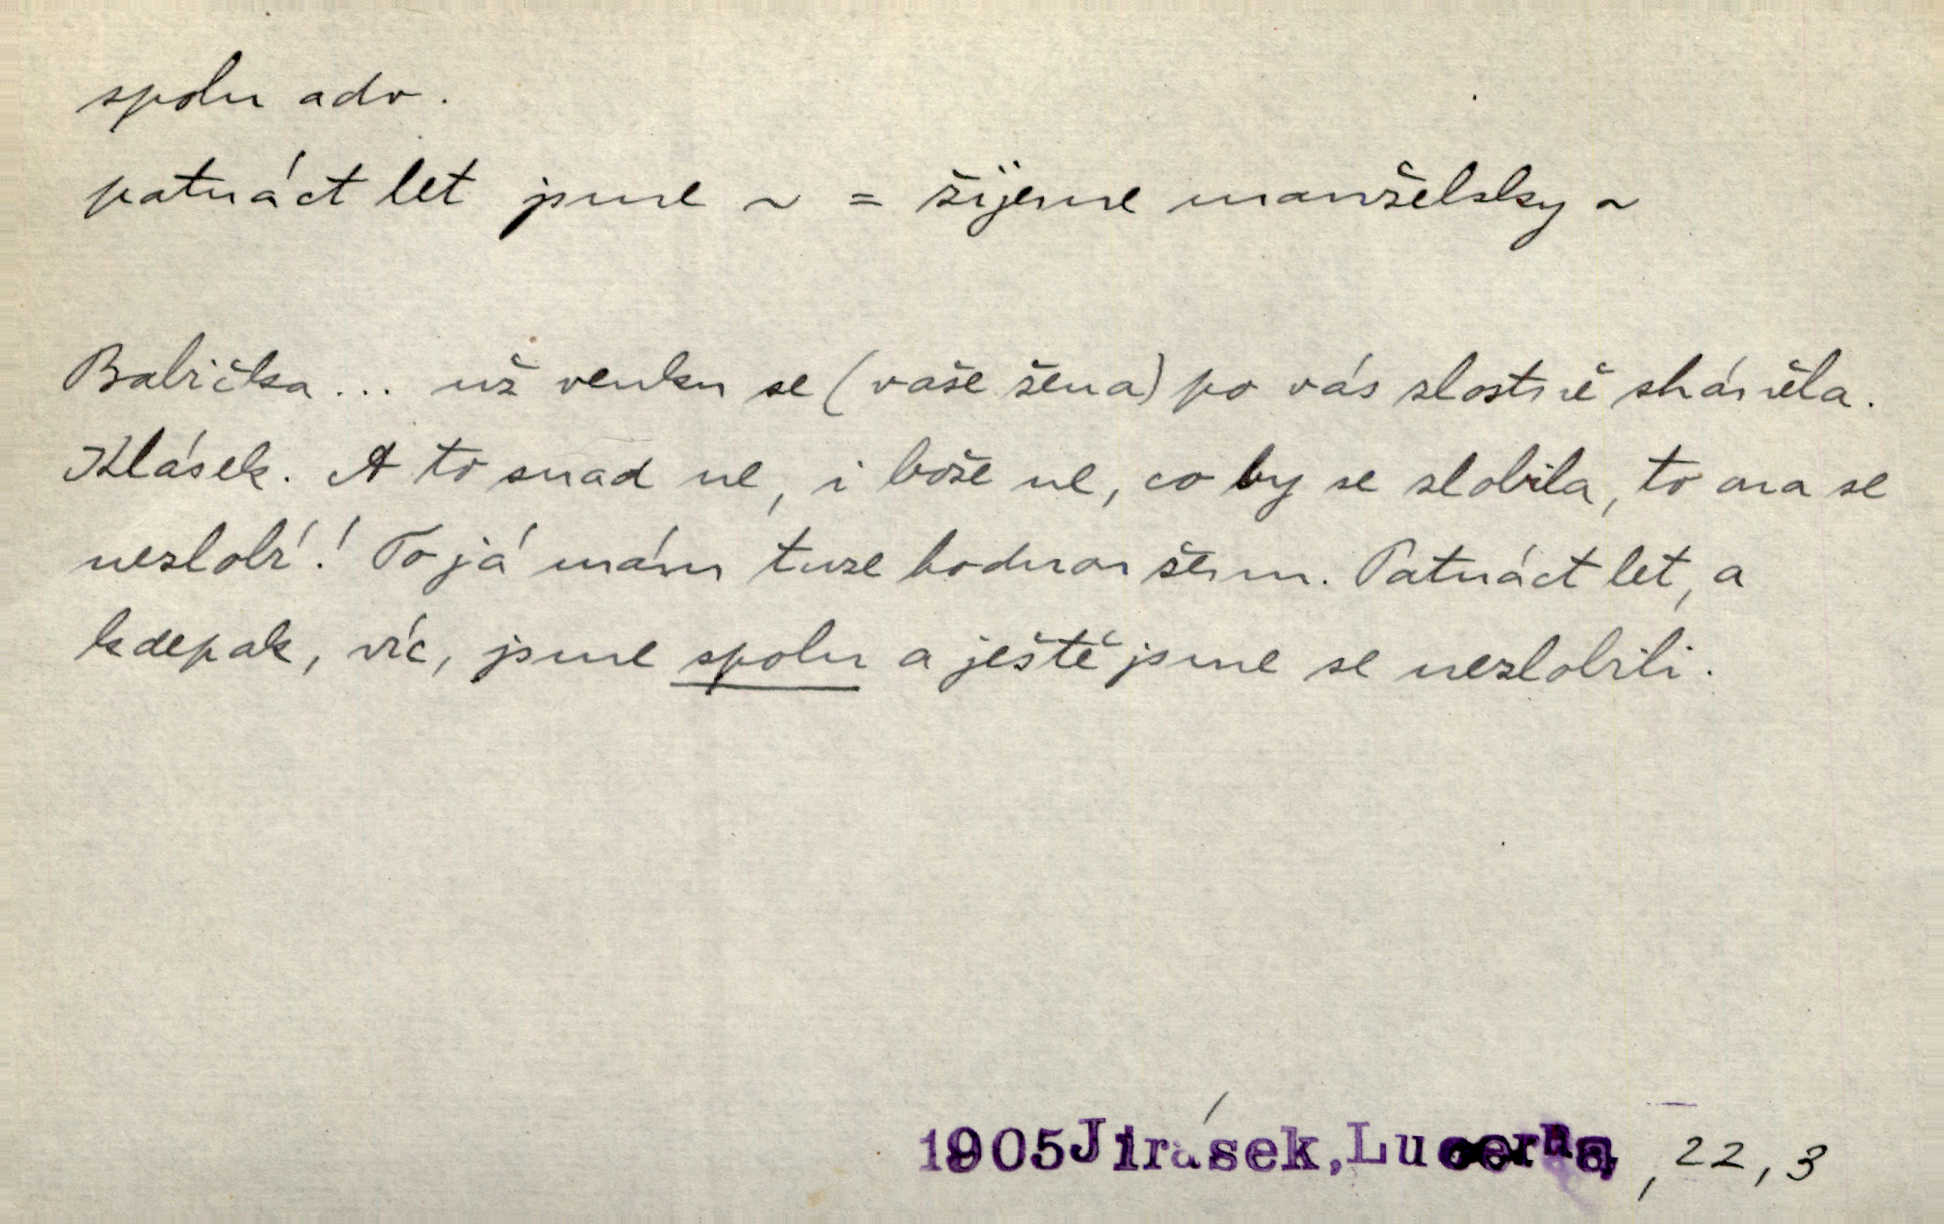 spolu adv.
patnáct let jsme ~ = žijeme manželsky ~
Babička... už venku se (vaše žena) po vás zlostně sháněla.
Klásek. A to snad ne, i bože ne, co by se zlobila, to ona se
nezlobí! To já mám tuze hodnou ženu. Patnáct let, a
kdepak, víc, jsme spolu a ještě jsme se nezlobili.
1905 Jirásek, Lucerna, 22, 3